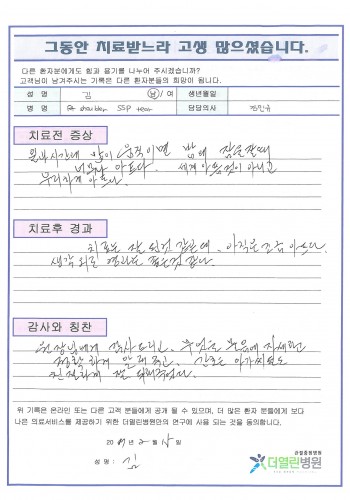 그동안 치료받느라 고생 많으셨습니다.
다른 환자분에게도 힘과 용기를 나누어 주시겠습니까?
고객님이 남겨주시는 기록은 다른 환자분들의 희망이 됩니다.
성 명 김 남 / 여 생년월일
병 명 shoulder SSP tear 담당의사
치료전 증상
일과시간에 많이 움직이면 밤에 잠을 잘때
너무나 아프다. 세게 아픈것이 아니고
우리하게 아프다.
치료후 경과
치료는 잘 된것 같은데, 아직은 조금 아프다.
생각 외로 결과는 좋은것 같다.
감사와 칭찬
원장님에게 감사드리고, 무엇을 물음에 자세하고
정확하게 알려주고, 간호는 아가씨들도
친절하게 잘 대해주었다.
위 기록은 온라인 또는 다른 고객 분들에게 공개 될 수 있으며, 더 많은 환자 분들에게 보다
나은 의료서비스를 제공하기 위한 더열린병원만의 연구에 사용 되는 것을 동의합니다.
20 년 2 월 일
성 명 : 김
관절중점병원
더열린병원